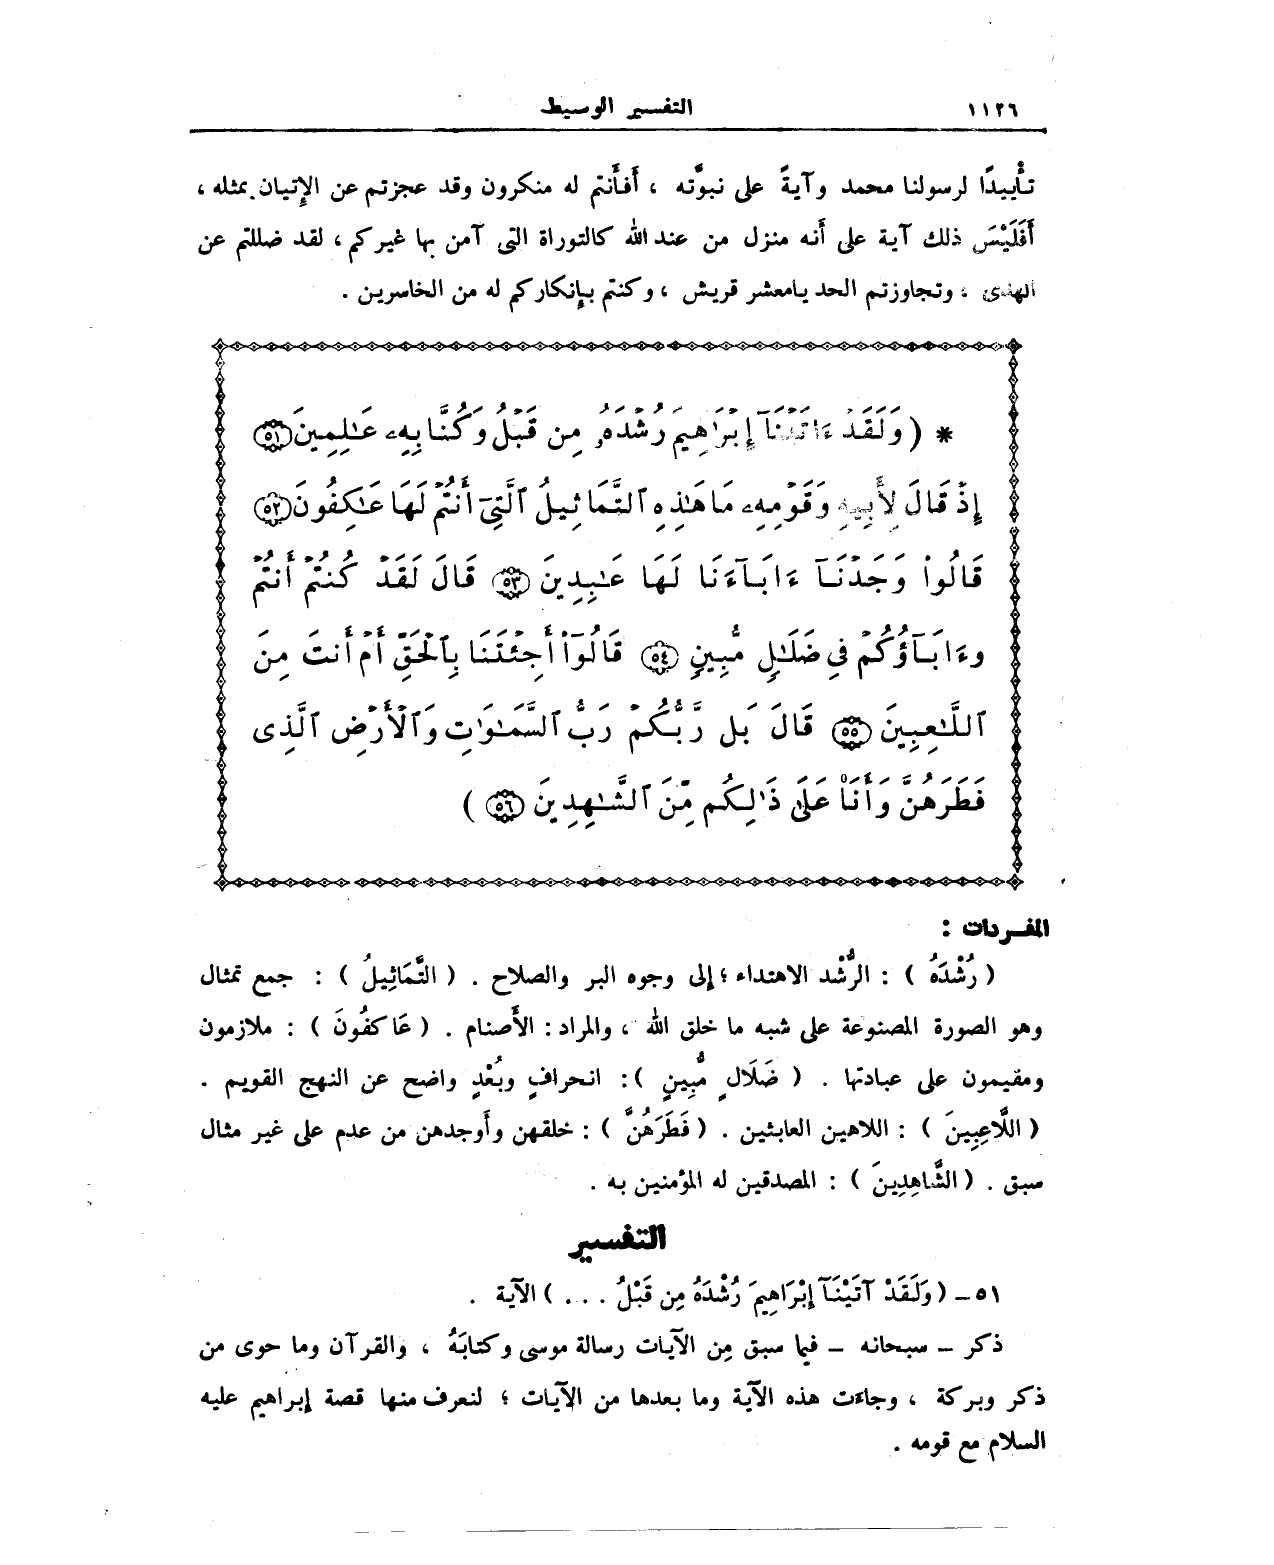 ١١٢٦
التفسير الوسيط
تأْييدًا لرسولنا محمد وآيةً على نبوَّته ، أَفأَنتم له منكرون وقد عجزتم عن الإِتيان بمثله ،
أَفَلَيْسَ ذلك آية على أَنه منزل من عند الله كالتوراة التى آمن بها غيركم ، لقد ضللتم عن
الهدى ، وتجاوزتم الحد يامعشر قريش ، وكنتم بإنكاركم له من الخاسرين .
* ( وَلَقَدْ ءَاتَيْنَآ إِبْرَٰهِيمَ رُشْدَهُۥ مِن قَبْلُ وَكُنَّا بِهِۦ عَٰلِمِينَ ٥١
إِذْ قَالَ لِأَبِيهِ وَقَوْمِهِۦ مَا هَٰذِهِ ٱلتَّمَاثِيلُ ٱلَّتِىٓ أَنتُمْ لَهَا عَٰكِفُونَ ٥٢
قَالُوا۟ وَجَدْنَآ ءَابَآءَنَا لَهَا عَٰبِدِينَ ٥٣ قَالَ لَقَدْ كُنتُمْ أَنتُمْ
وَءَابَآؤُكُمْ فِى ضَلَٰلٍ مُّبِينٍ ٥٤ قَالُوٓا۟ أَجِئْتَنَا بِٱلْحَقِّ أَمْ أَنتَ مِنَ
ٱللَّٰعِبِينَ ٥٥ قَالَ بَل رَّبُّكُمْ رَبُّ ٱلسَّمَٰوَٰتِ وَٱلْأَرْضِ ٱلَّذِى
فَطَرَهُنَّ وَأَنَا۠ عَلَىٰ ذَٰلِكُم مِّنَ ٱلشَّٰهِدِينَ ٥٦ )
المفردات :
( رُشْدَهُ ) : الرُّشد الاهتداء ؛ إلى وجوه البر والصلاح . ( التَّمَاثِيلُ ) : جمع تمثال
وهو الصورة المصنوعة على شبه ما خلق الله ، والمراد : الأَصنام . ( عَاكفُونَ ) : ملازمون
ومقيمون على عبادتها . ( ضَلَالٍ مُّبِينٍ ) : انحرافٍ وبُعْدٍ واضح عن النهج القويم .
( اللَّاعِبِينَ ) : اللاهين العابثين . ( فَطَرَهُنَّ ) : خلقهن وأَوجدهن من عدم على غير مثال
سبق . ( الشَّاهِدِينَ ) : المصدقين له المؤمنين به .
التفسير
٥١ - ( وَلَقَدْ آتَيْنَآ إِبْرَاهِيمَ رُشْدَهُ مِن قَبْلُ . . . ) الآية .
ذكر – سبحانه – فيما سبق مِن الآيات رسالة موسى وكتابَهُ ، والقرآن وما حوى من
ذكر وبركة ، وجاءَت هذه الآية وما بعدها من الآيات ؛ لنعرف منها قصة إبراهيم عليه
السلام مع قومه .